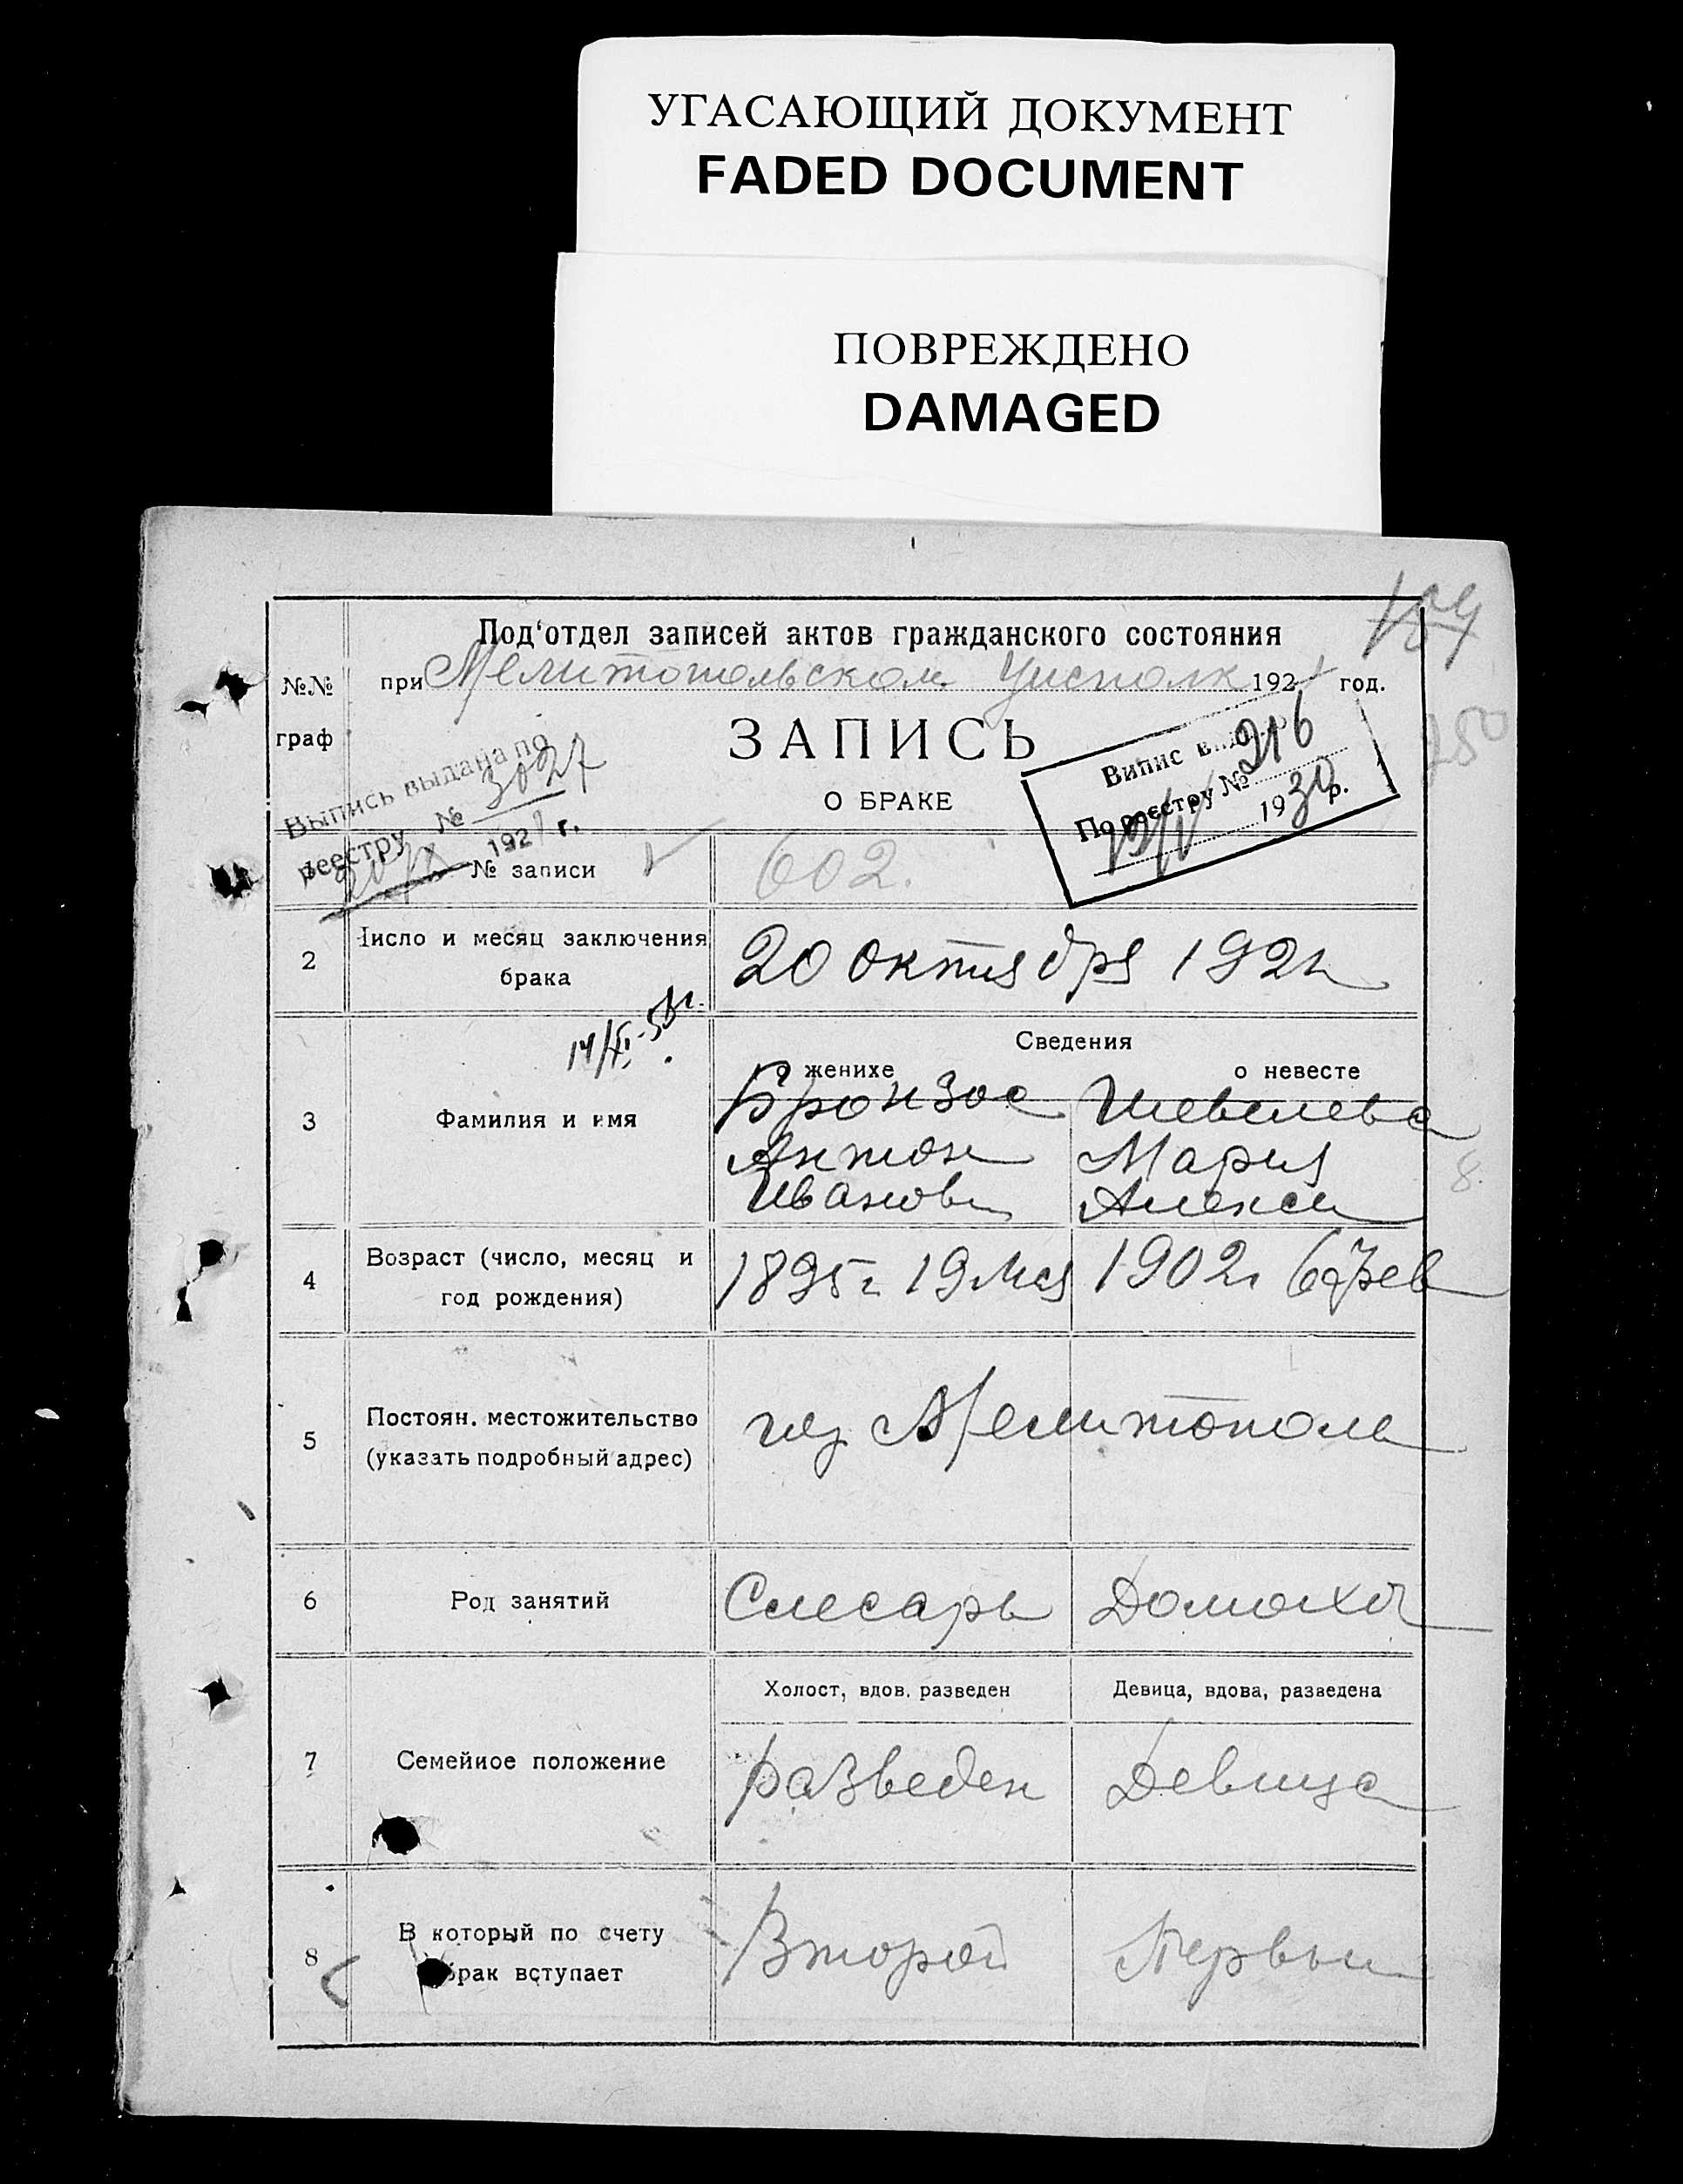 УГАСАЮЩИЙ ДОКУМЕНТ
FADED DOCUMENT
ПОВРЕЖДЕНО
DAMAGED
Под'отдел записей актов гражданского состояния
№№
граф
при Мелитопольском Уисполк 192 год.
ЗАПИСЬ
О БРАКЕ
Выпись выдана по
реестру № 3027
192 г.
Випис
По реестру № 216
1930 р.
№ записи
602.
2
Число и месяц заключения
брака
20 октября 192
3
Фамилия и имя
Сведения
о женихе
о невесте
Бронзос
Антон
Иванов
Шевелева
Мария
Алексе
4
Возраст (число, месяц и
год рождения)
1895 г 19 мая
1902 г 6 фев
5
Постоян. местожительство
(указать подробный адрес)
гор Мелитополь
6
Род занятий
Слесарь
Домохоз
7
Семейное положение
Холост, вдов. разведен
Девица, вдова, разведена
разведен
Девица
8
В который по счету
брак вступает
Второй
Первый